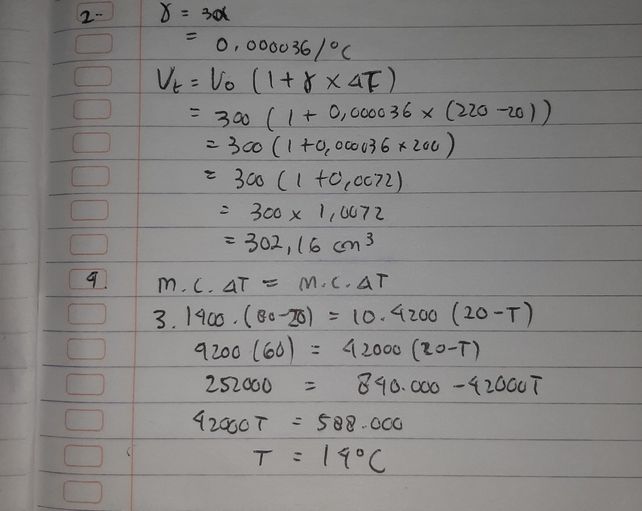 2. γ = 3α
= 0,000036/°C
Vt = Vo (1 + γ × ΔT)
= 300 (1 + 0,000036 × (220 - 20))
= 300 (1 + 0,000036 × 200)
= 300 (1 + 0,0072)
= 300 × 1,0072
= 302,16 cm³
4. m.c.ΔT = m.c.ΔT
3.1400.(80-20) = 10.4200 (20-T)
4200 (60) = 42000 (20-T)
252000 = 840.000 - 42000T
42000T = 588.000
T = 14°C